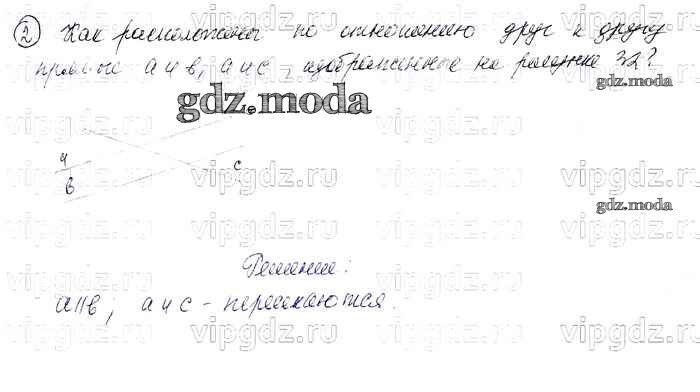 ② Как расположены по отношению друг к другу
прямые a и b, a и c, изображённые на рисунке 32?
gdz.moda
gdz.moda
vipgdz.ru vipgdz.ru vipgdz.ru vipgdz.ru
a
b
c
vipgdz.ru vipgdz.ru vipgdz.ru vipgdz.ru
gdz.moda
vipgdz.ru vipgdz.ru vipgdz.ru vipgdz.ru
Решение:
a||b; a и c - пересекаются.
vipgdz.ru vipgdz.ru vipgdz.ru vipgdz.ru